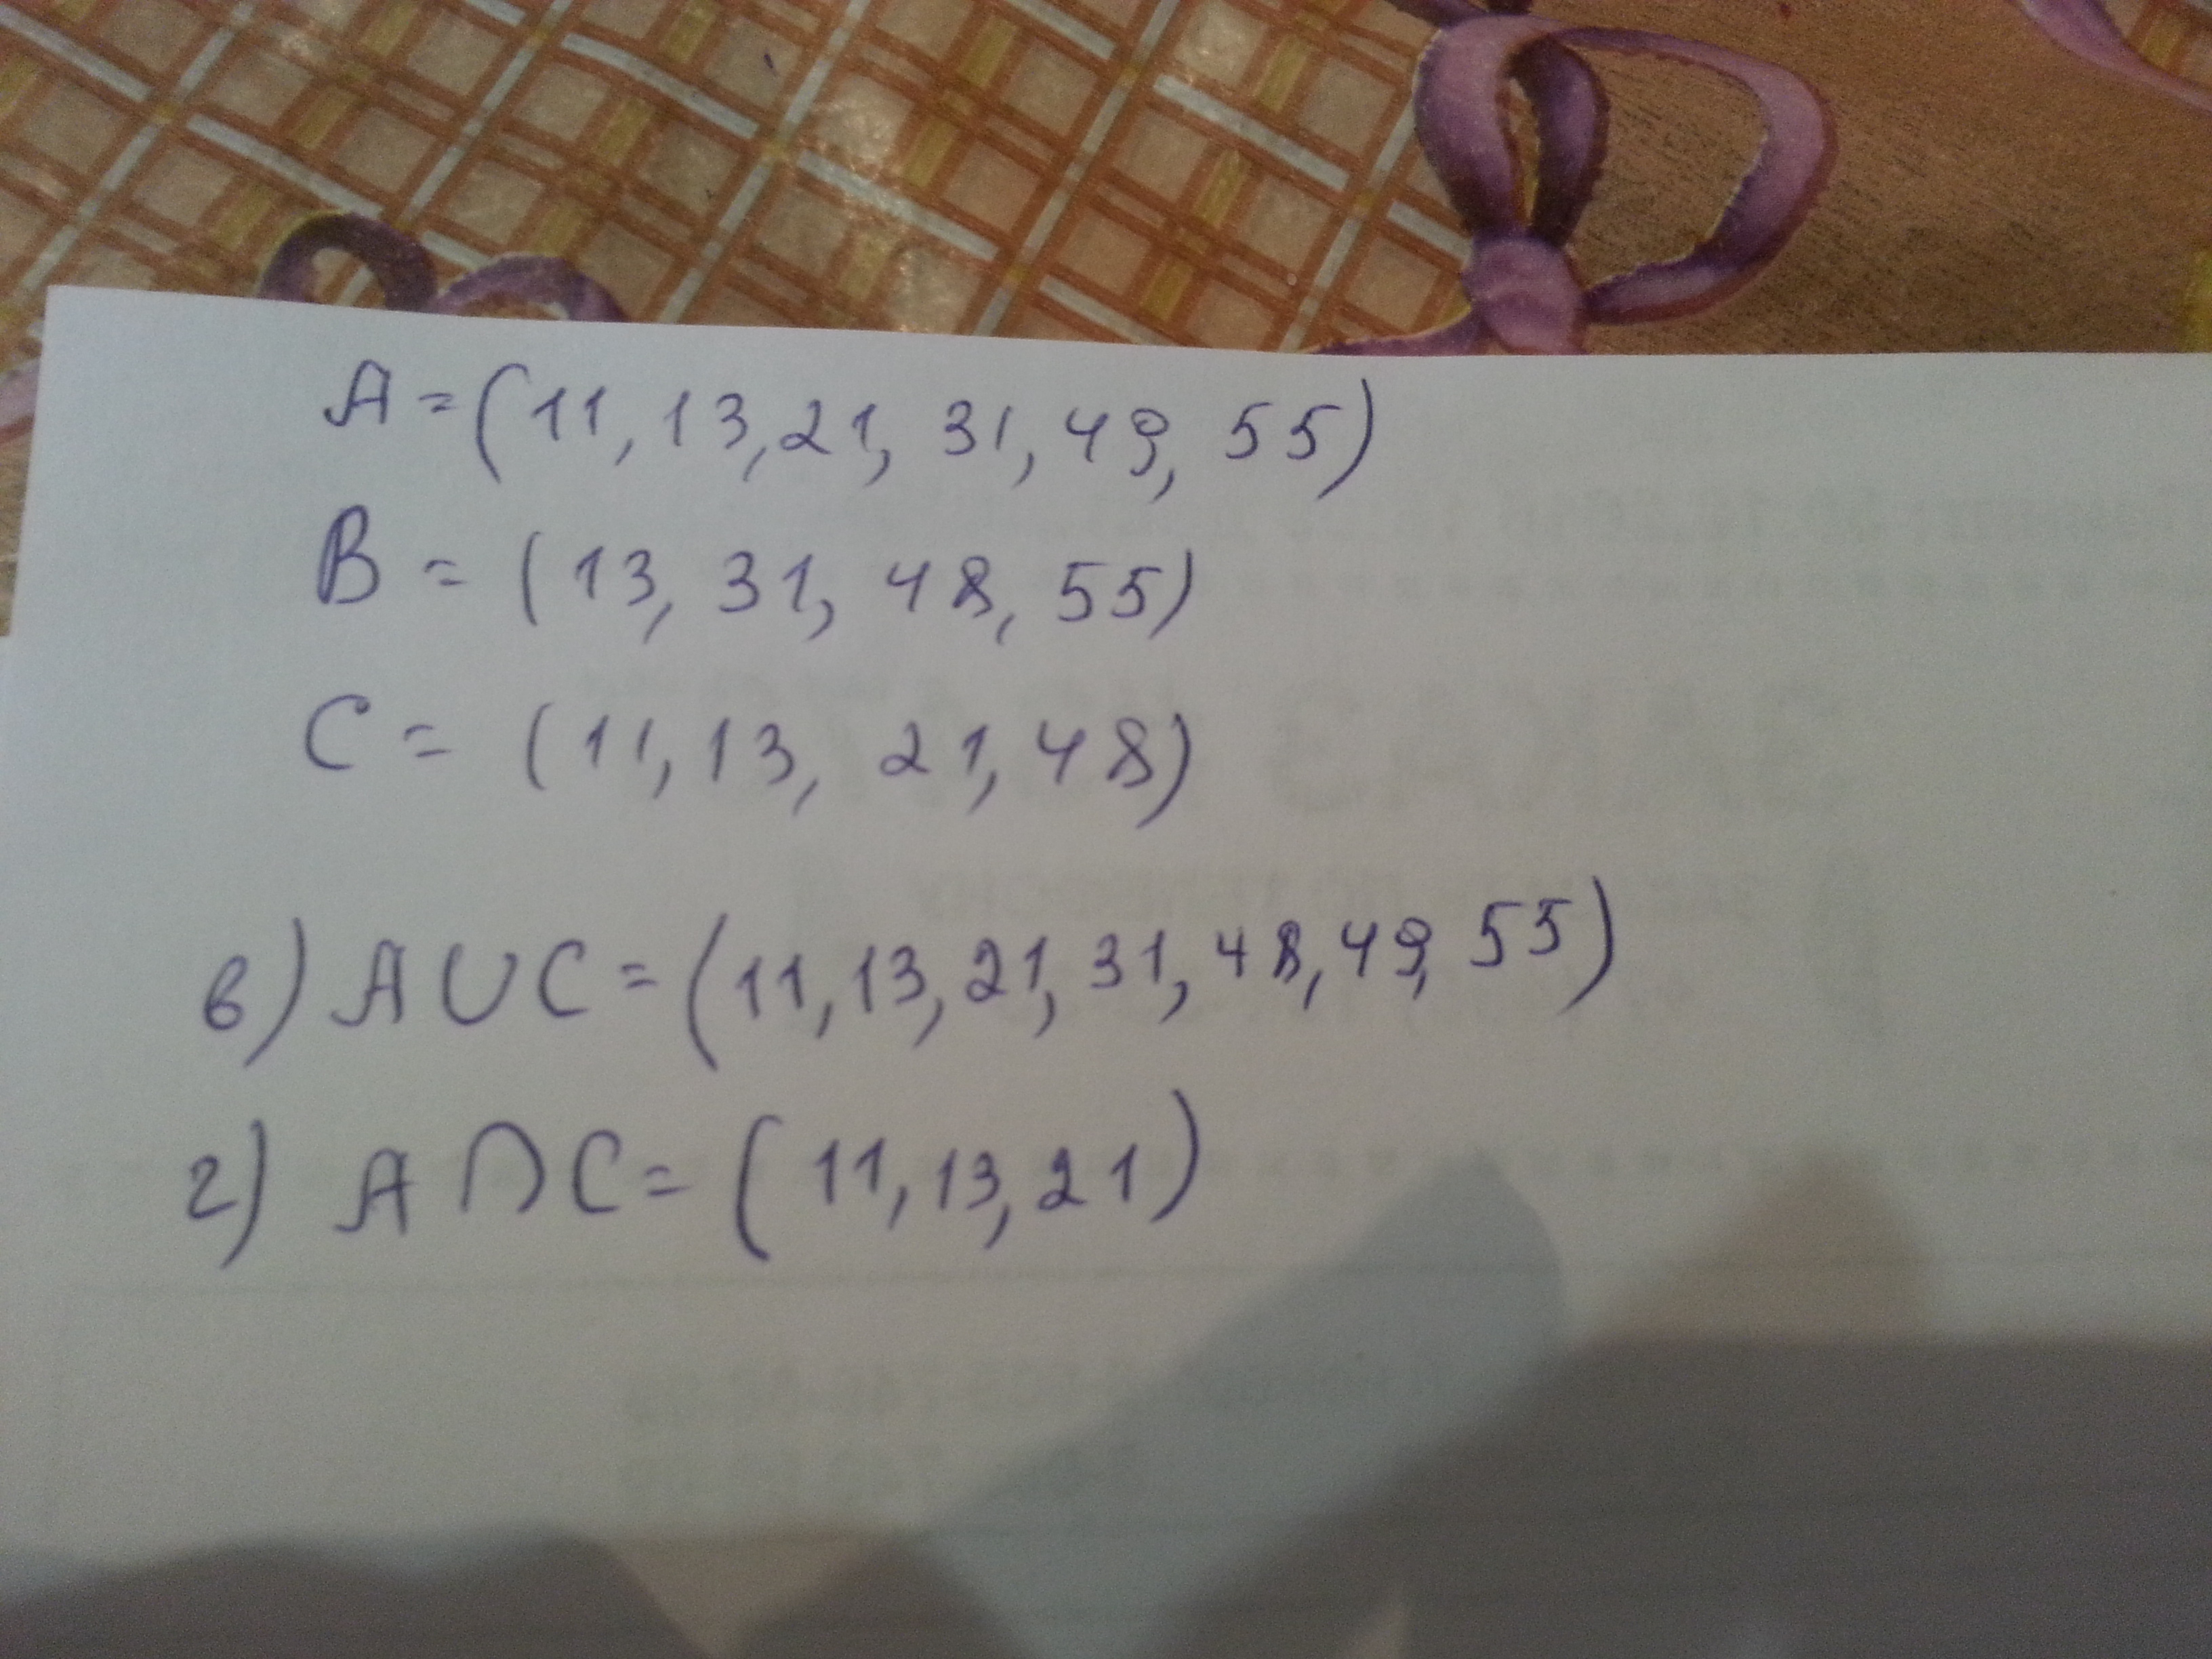 A = (11, 13, 21, 31, 49, 55)
B = (13, 31, 48, 55)
C = (11, 13, 21, 48)
в) A ∪ C = (11, 13, 21, 31, 48, 49, 55)
г) A ∩ C = (11, 13, 21)